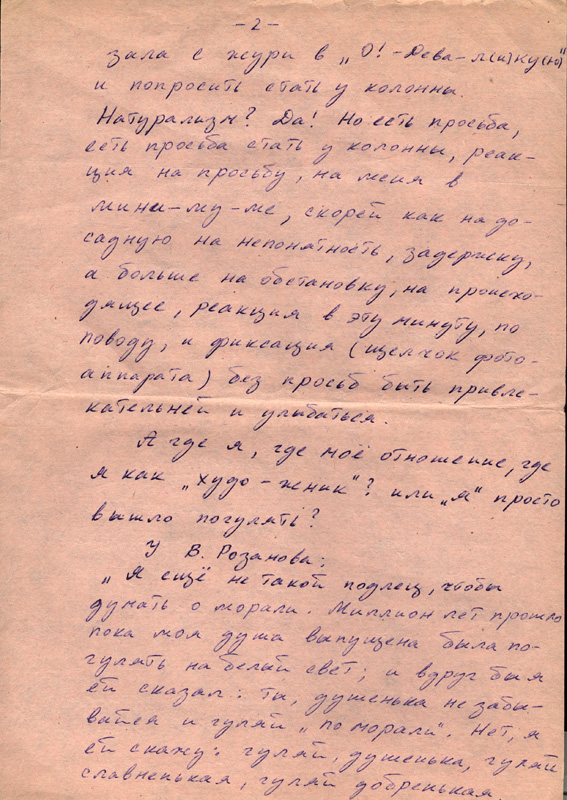 -2-
зала с жури в „О!-Дева-л(и)ку(ю)"
и попросить стать у колонны.
Натурализм? Да! Но есть просьба,
есть просьба стать у колонны, реак-
ция на просьбу, на меня в
мини-му-ме, скорей как на до-
садную на непонятность, задержку,
а больше на обстановку, на происхо-
дящее, реакция в эту минуту, по
поводу, и фиксация (щелчок фото-
аппарата) без просьб быть привле-
кательней и улыбаться.
А где я, где моё отношение, где
я как „худо-жник"? или „я" просто
вышло погулять?
У В. Розанова:
„Я ещё не такой подлец, чтобы
думать о морали. Миллион лет прошло
пока моя душа выпущена была по-
гулять на белый свет; и вдруг бы я
ей сказал: ты, душенька не забы-
вайся и гуляй „по морали". Нет, я
ей скажу: гуляй, душенька, гуляй
славненькая, гуляй добренькая